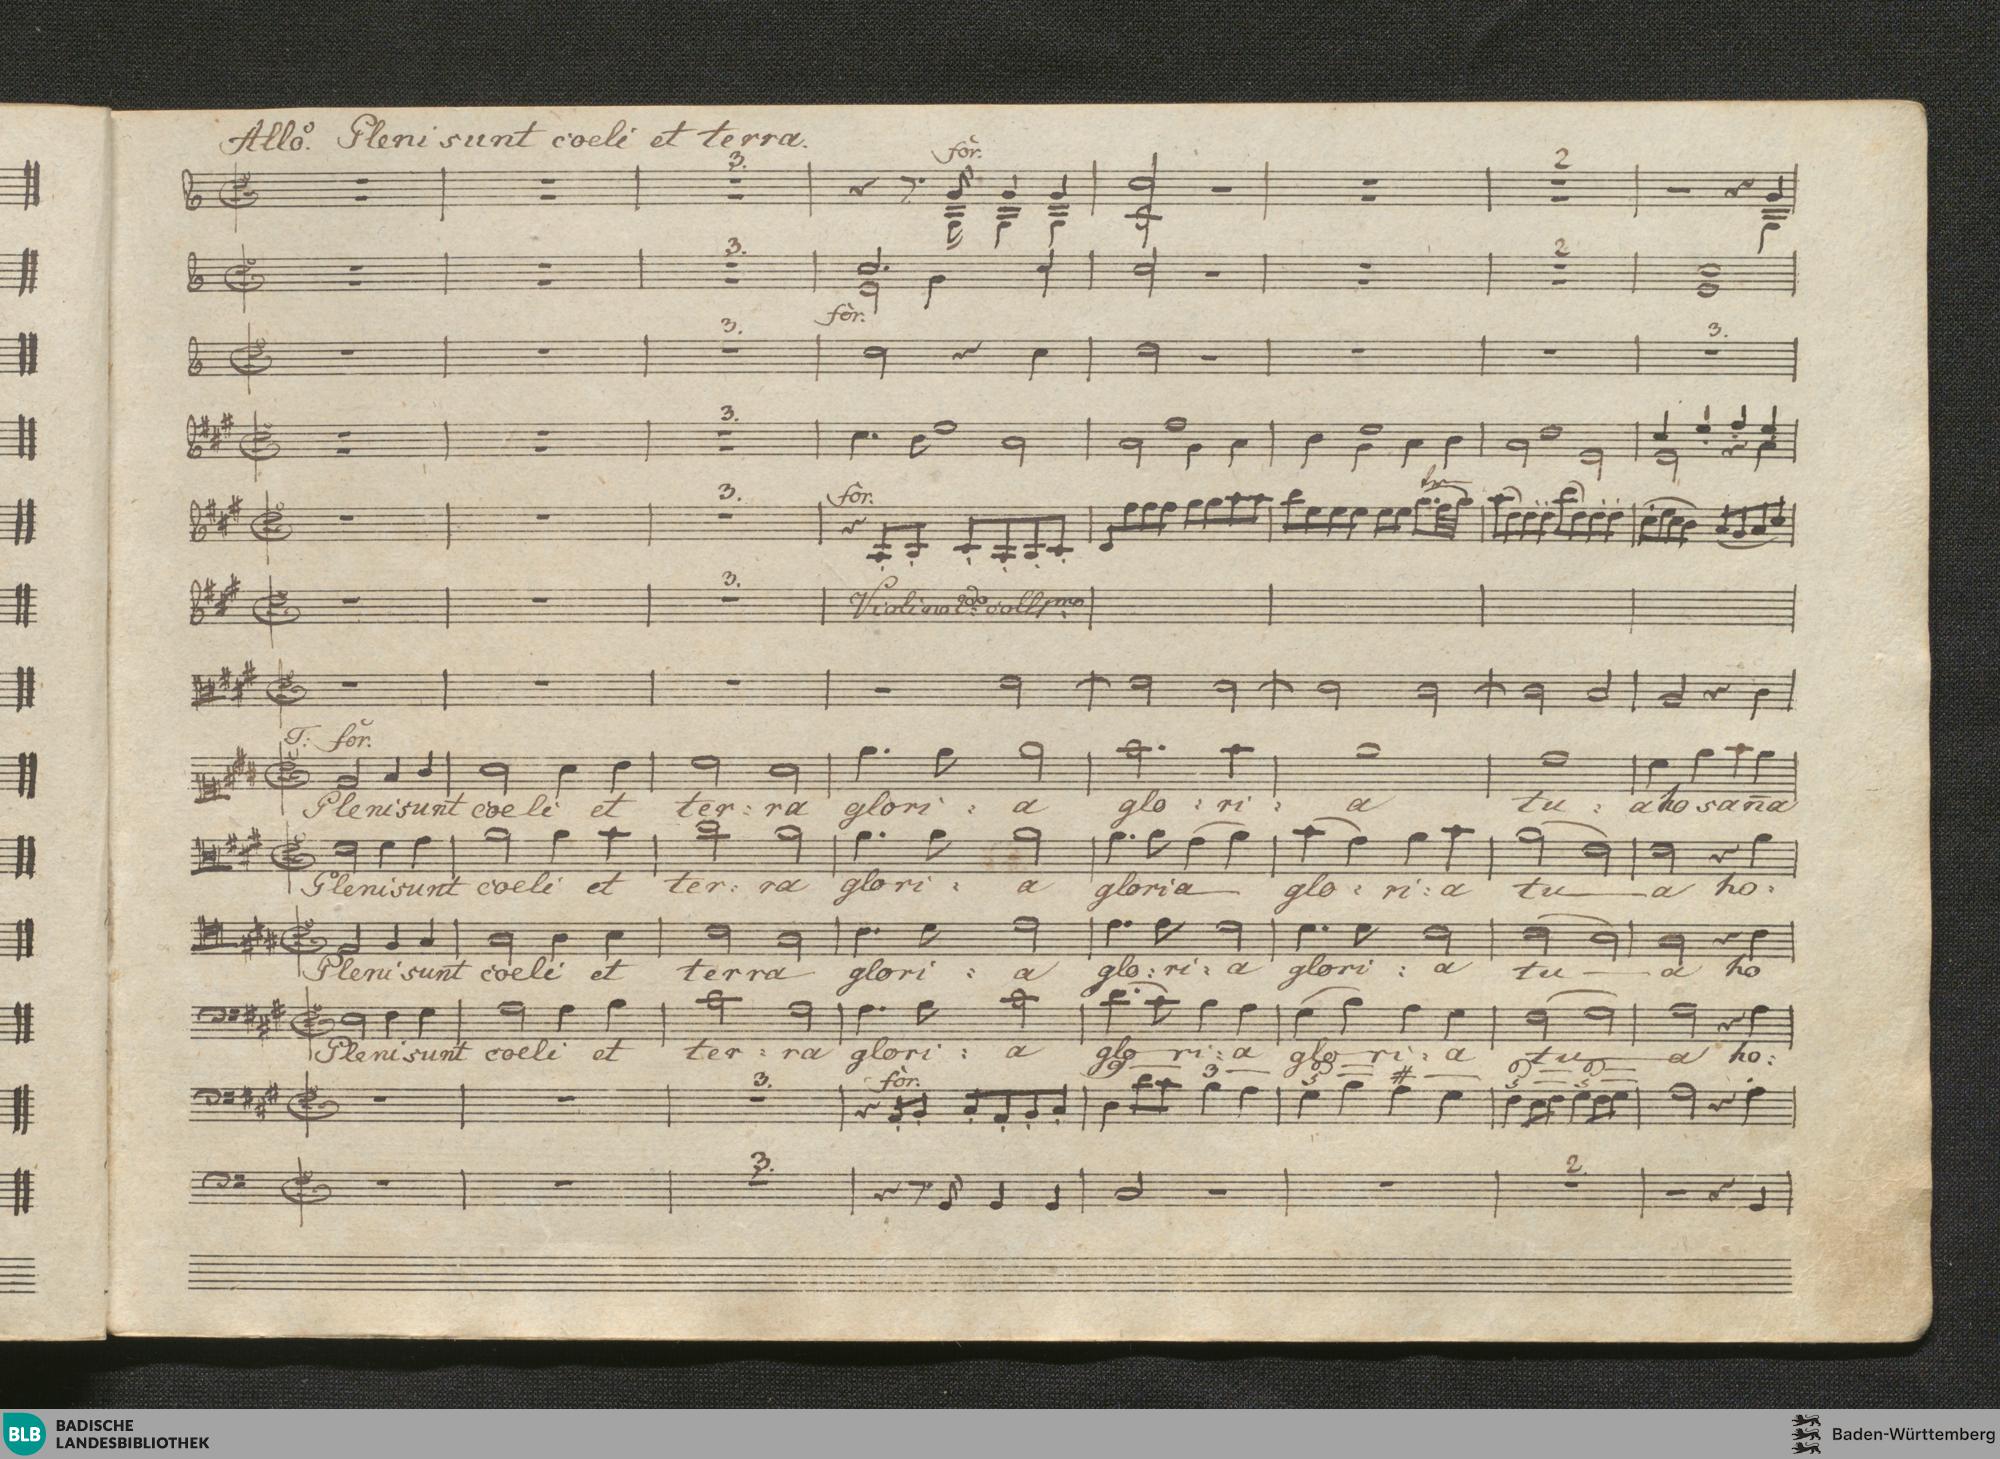 Allo. Pleni sunt coeli et terra.
3. for.
2
3.
2
for.
3.
3.
3.
for.
3.
3.
Violino 2do coll pmo
T: for.
Pleni sunt coeli et ter: ra glori: a glo: ri: a tu: a hosana
Pleni sunt coeli et ter: ra glori: a gloria glo: ri: a tu a ho:
Pleni sunt coeli et terra glori: a glo: ri: a glori: a tu a ho
Pleni sunt coeli et ter: ra glori: a glo ri: a glo ri: a tu a ho:
3. for.
3.
2.
BLB BADISCHE
LANDESBIBLIOTHEK
Baden-Württemberg